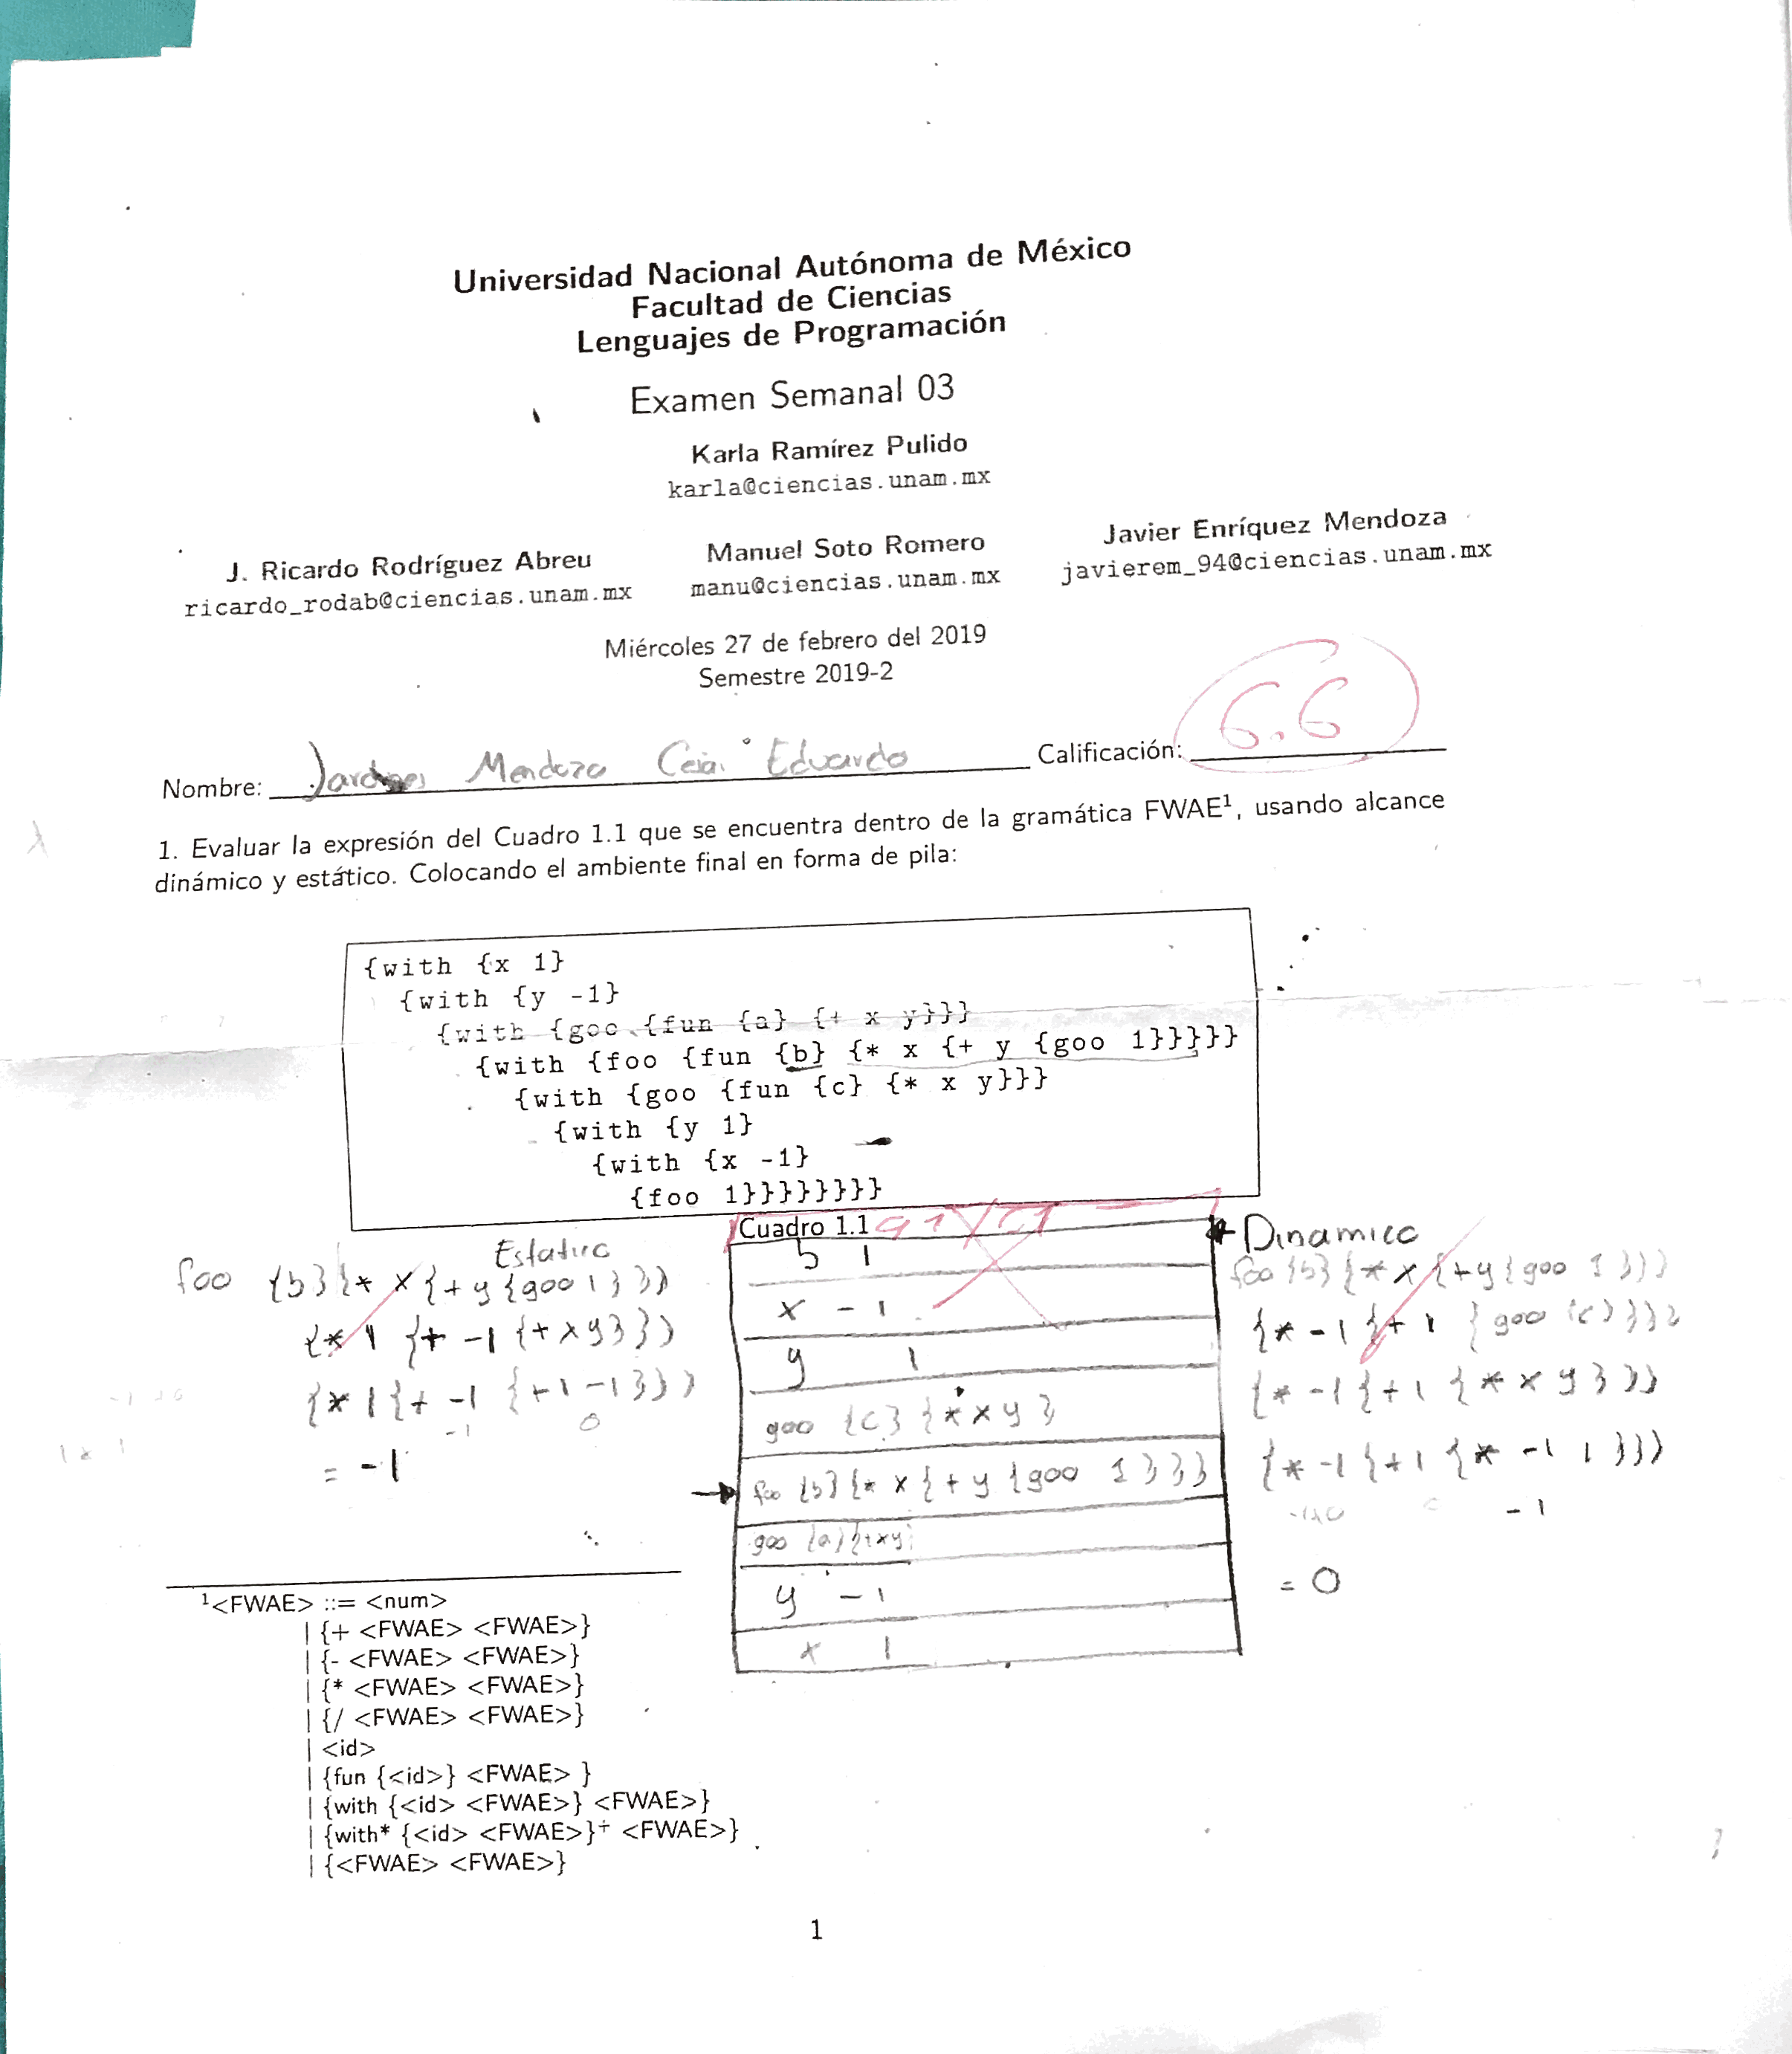 Universidad Nacional Autónoma de México
Facultad de Ciencias
Lenguajes de Programación
Examen Semanal 03
Karla Ramírez Pulido
karla@ciencias.unam.mx
J. Ricardo Rodríguez Abreu Manuel Soto Romero Javier Enríquez Mendoza
ricardo_rodab@ciencias.unam.mx manu@ciencias.unam.mx javierem_94@ciencias.unam.mx
Miércoles 27 de febrero del 2019
Semestre 2019-2
Nombre: Mendoza Eduardo Calificación: 6.6
1. Evaluar la expresión del Cuadro 1.1 que se encuentra dentro de la gramática FWAE¹, usando alcance
dinámico y estático. Colocando el ambiente final en forma de pila:
{with {x 1}
{with {y -1}
{with {goo {fun {a} {+ x y}}}
{with {foo {fun {b} {* x {+ y {goo 1}}}}}
{with {goo {fun {c} {* x y}}}
{with {y 1}
{with {x -1}
{foo 1}}}}}}}}
Cuadro 1.1
Estatico
foo {b}{* x {+ y {goo 1}}}
{* 1 {+ -1 {+ x y}}}
{* 1 {+ -1 {+ 1 -1}}}
-1 0
= -1
b 1
x -1
y 1
goo {c} {* x y}
foo {b}{* x {+ y {goo 1}}}
goo {a}{+ x y}
y -1
x 1
Dinamico
foo {b}{* x {+ y {goo 1}}}
{* -1 {+ 1 {goo {c}}}}
{* -1 {+ 1 {* x y}}}
{* -1 {+ 1 {* -1 1}}}
-1
= 0
¹<FWAE> ::= <num>
| {+ <FWAE> <FWAE>}
| {- <FWAE> <FWAE>}
| {* <FWAE> <FWAE>}
| {/ <FWAE> <FWAE>}
| <id>
| {fun {<id>} <FWAE> }
| {with {<id> <FWAE>} <FWAE>}
| {with* {<id> <FWAE>}⁺ <FWAE>}
| {<FWAE> <FWAE>}
1